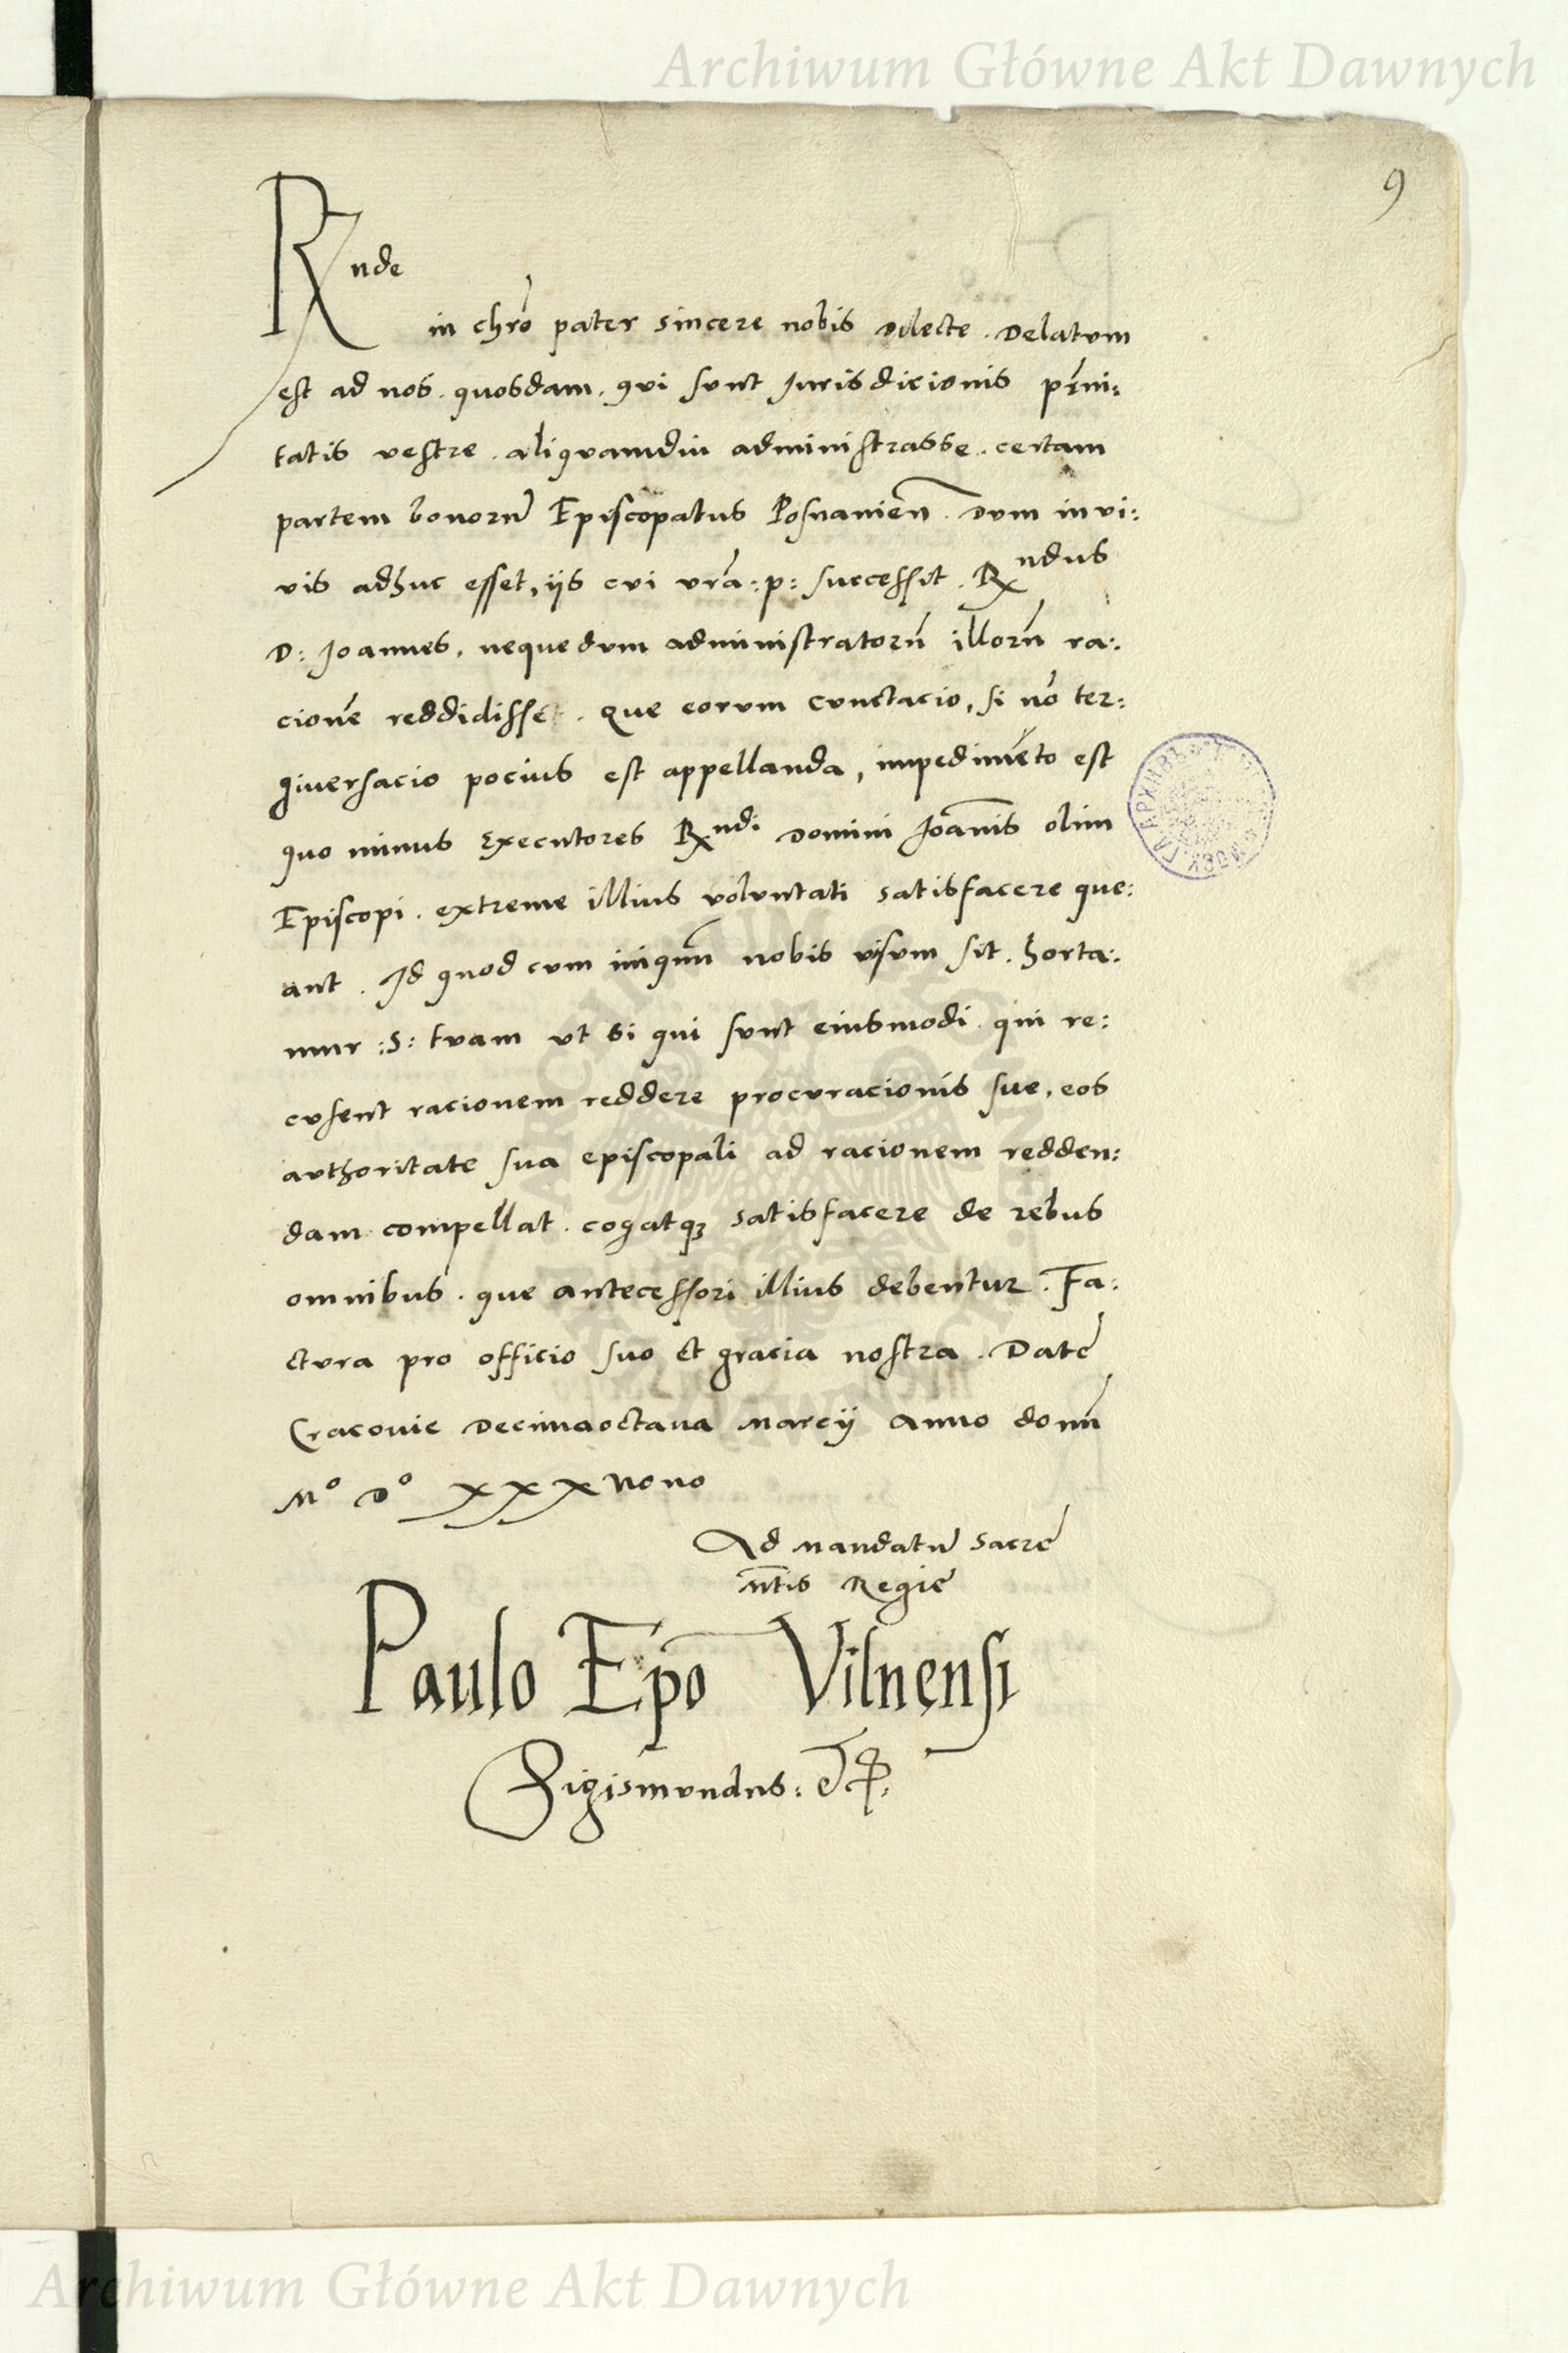 Archiwum Główne Akt Dawnych
9
Rnde
in chro pater sincere nobis dilecte . Delatum
est ad nos . quosdam . qui sunt Jurisdicionis prni:
tatis vestre . aliquamdiu administrasse . certam
partem bonoru Episcopatus Posnanien . Dum in vi:
vis adhuc esset, iis cui vra : p : successit . Rndus
D : Joannes, nequedum administratoru illoru ra:
cione reddidisse . que eorum cunctacio, si no ter:
giversacio pocius est appellanda, impedimeto est
quo minus Executores Rndi Domini Joanis olim
Episcopi . extreme illius voluntati satisfacere que:
ant . Id quod cum iniquu nobis visum sit . horta:
mur :S: tuam ut si qui sunt eiusmodi qui re:
cusent racionem reddere procuracionis sue, eos
authoritate sua episcopali ad racionem redden:
dam compellat . cogatq3 satisfacere de rebus
omnibus . que antecessori illius debentur . Fa:
ctura pro officio suo et gracia nostra . Date
Cracovie Decimaoctava Marcij Anno domi
Mo Do xxx nono
Ad mandatu sacre
mtis Regie
Paulo Epo Vilnensi
Sigismundus :
Archiwum Główne Akt Dawnych